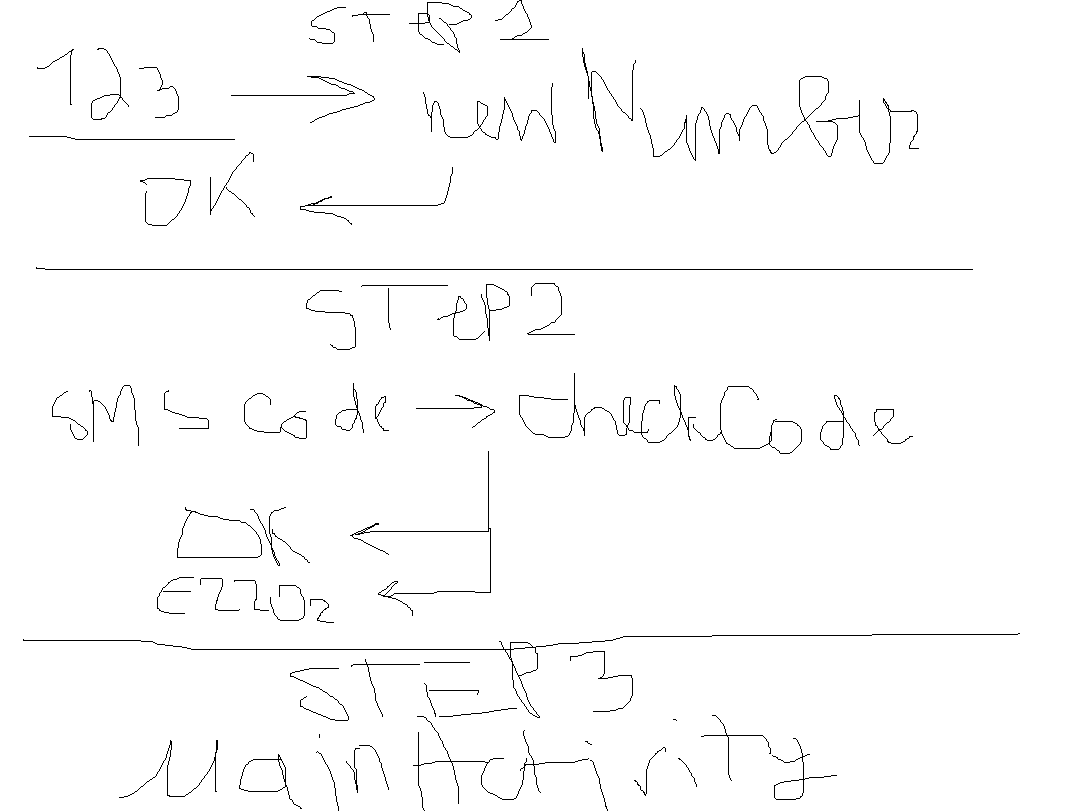 STEP 1
123 → newNumber
OK ←
STEP2
SM - Code → checkCode
OK ←
Error ←
STEP 3
MainActivity